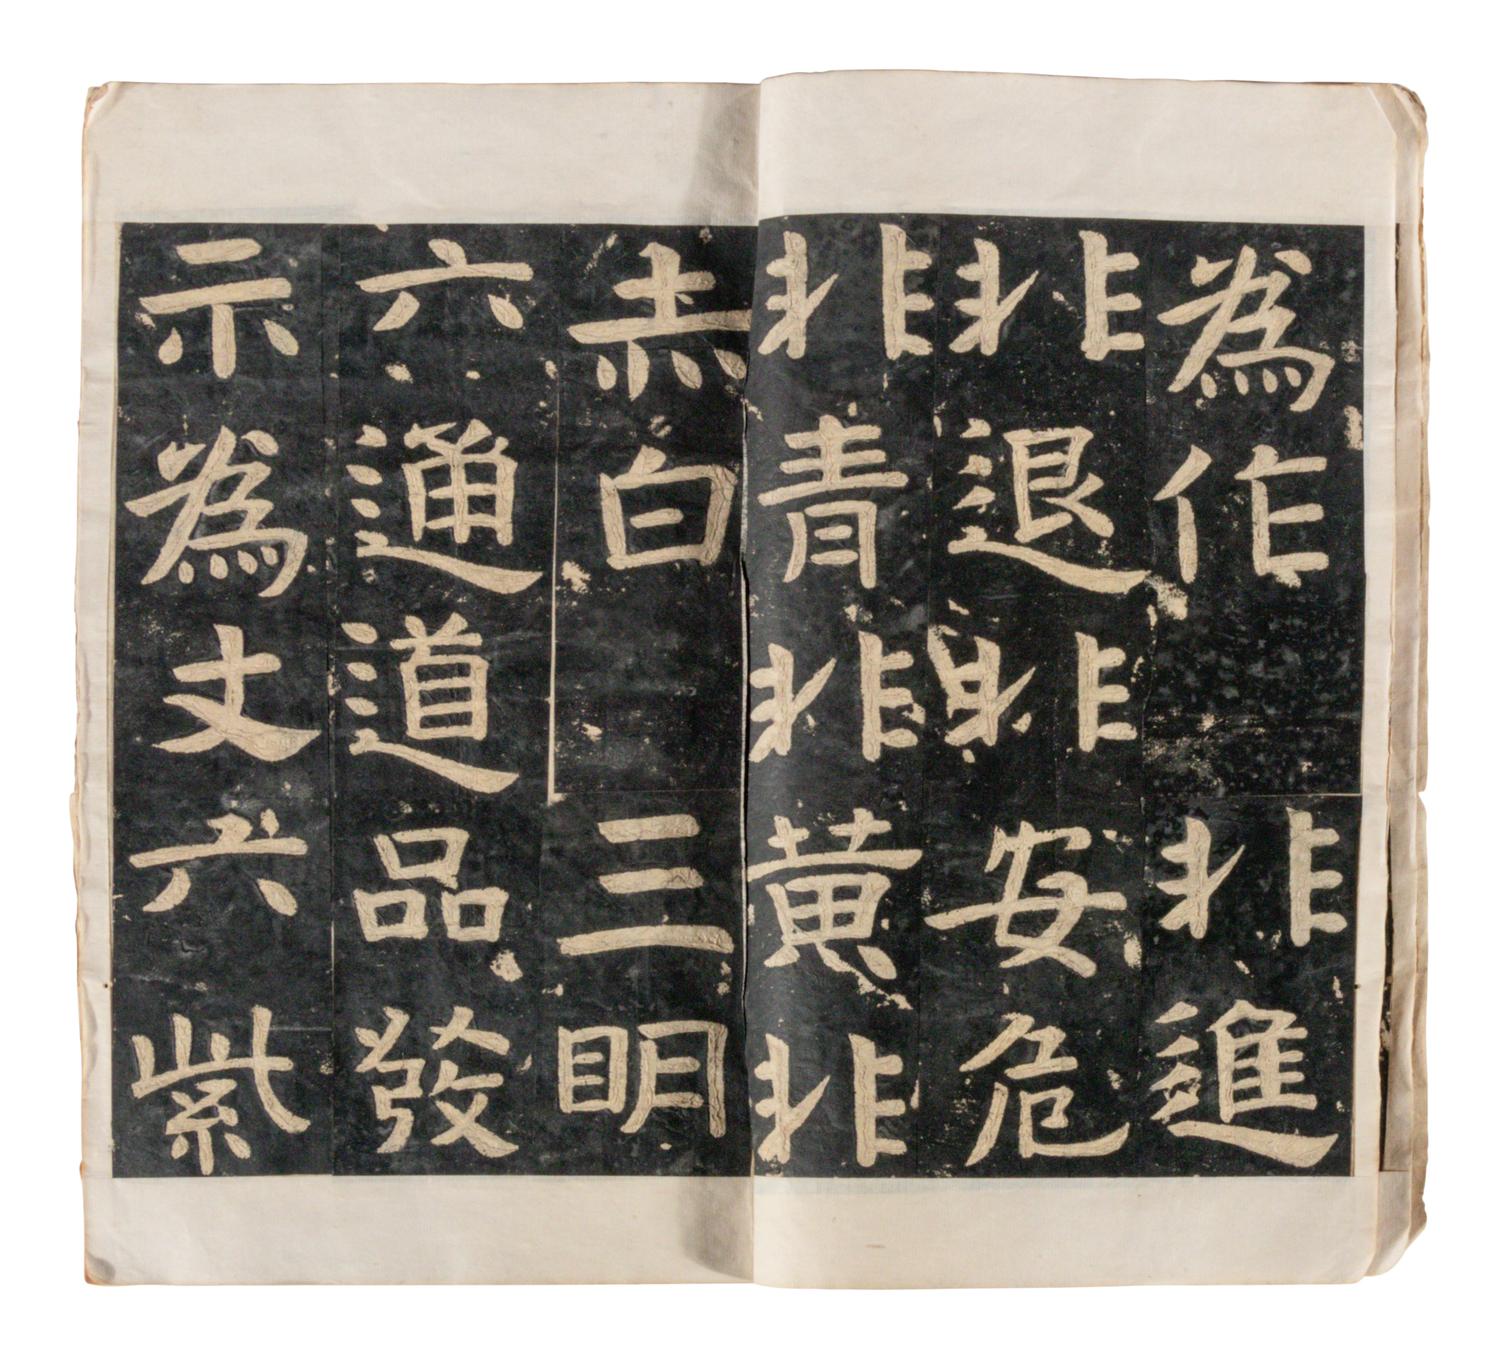 為作非進
非退非安危
非青非黃非
赤白三明
六通道品發
示為丈六紫